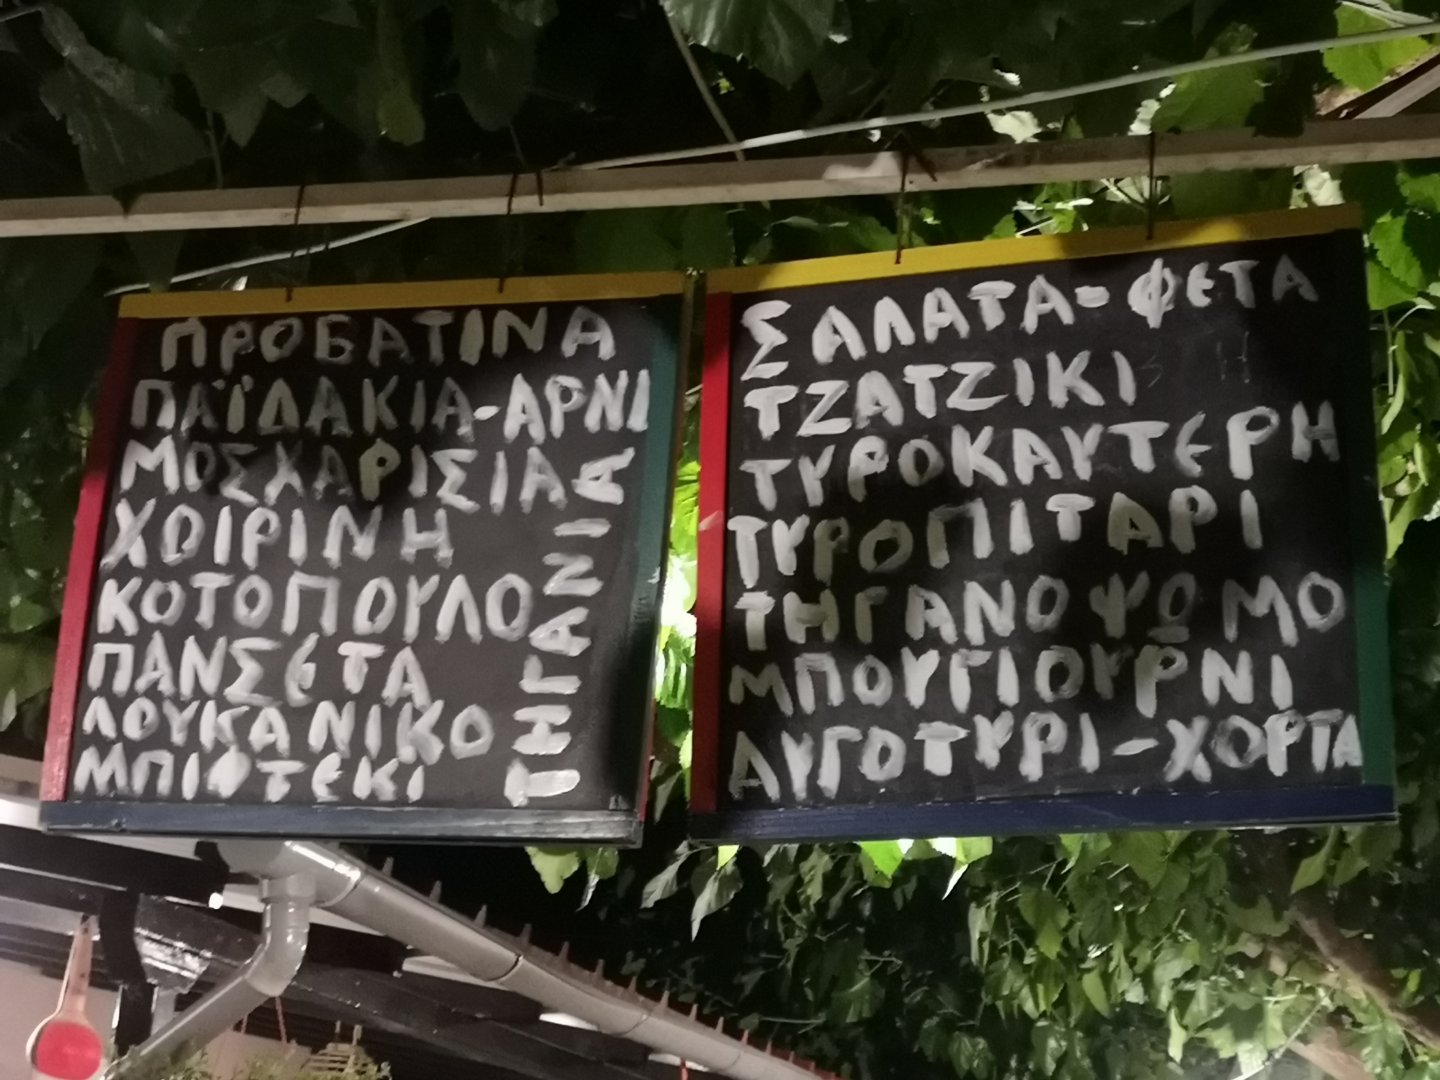 ΠΡΟΒΑΤΙΝΑ
ΠΑΪΔΑΚΙΑ-ΑΡΝΙ
ΜΟΣΧΑΡΙΣΙΑ
ΧΟΙΡΙΝΗ
ΚΟΤΟΠΟΥΛΟ
ΠΑΝΣΕΤΑ
ΛΟΥΚΑΝΙΚΟ
ΜΠΙΦΤΕΚΙ
ΤΗΓΑΝΙΑ
ΣΑΛΑΤΑ-ΦΕΤΑ
ΤΖΑΤΖΙΚΙ
ΤΥΡΟΚΑΥΤΕΡΗ
ΤΥΡΟΠΙΤΑΡΙ
ΤΗΓΑΝΟΨΩΜΟ
ΜΠΟΥΓΙΟΥΡΝΙ
ΑΥΓΟΤΥΡΙ-ΧΟΡΤΑ